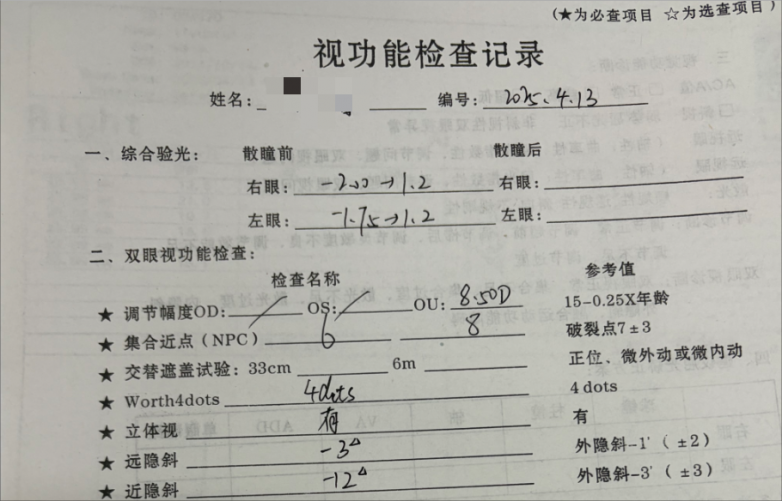 (★为必查项目 ☆为选查项目)
视功能检查记录
姓名: 编号: 2025.4.13
一、综合验光: 散瞳前 散瞳后
右眼: -2.00→1.2 右眼:
左眼: -1.75→1.2 左眼:
二、双眼视功能检查:
检查名称 参考值
★ 调节幅度OD: / OS: / OU: 8.50D 15-0.25X年龄
★ 集合近点(NPC) 6 8 破裂点7±3
★ 交替遮盖试验: 33cm 6m 正位、微外动或微内动
★ Worth4dots 4dots 4 dots
★ 立体视 有 有
★ 远隐斜 -3△ 外隐斜-1'(±2)
★ 近隐斜 -12△ 外隐斜-3'(±3)